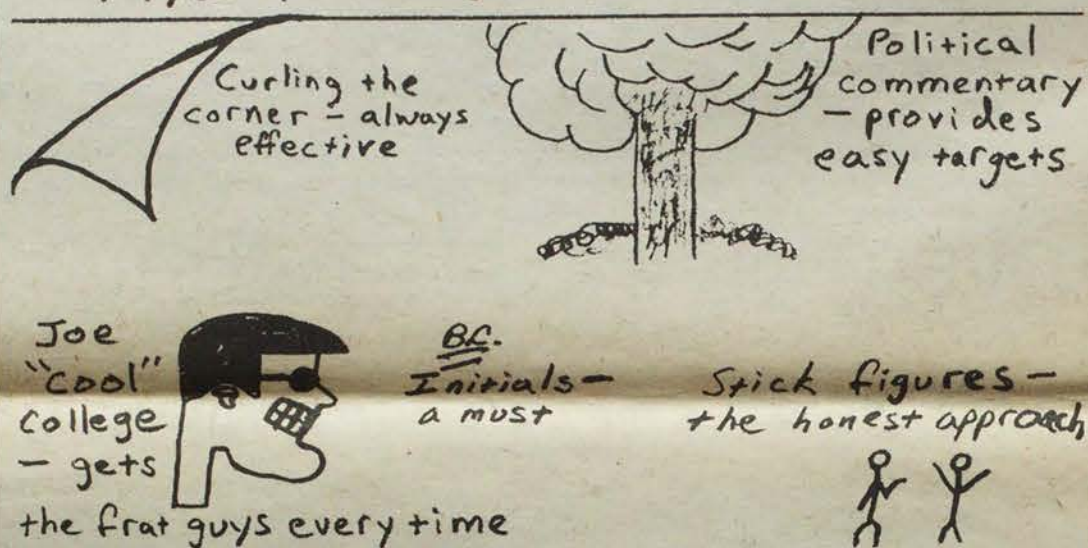 Curling the
corner - always
effective
Political
commentary
- provides
easy targets
Joe
"Cool"
College
- gets
the frat guys every time
B.C.
Initials -
a must
Stick figures -
the honest approach